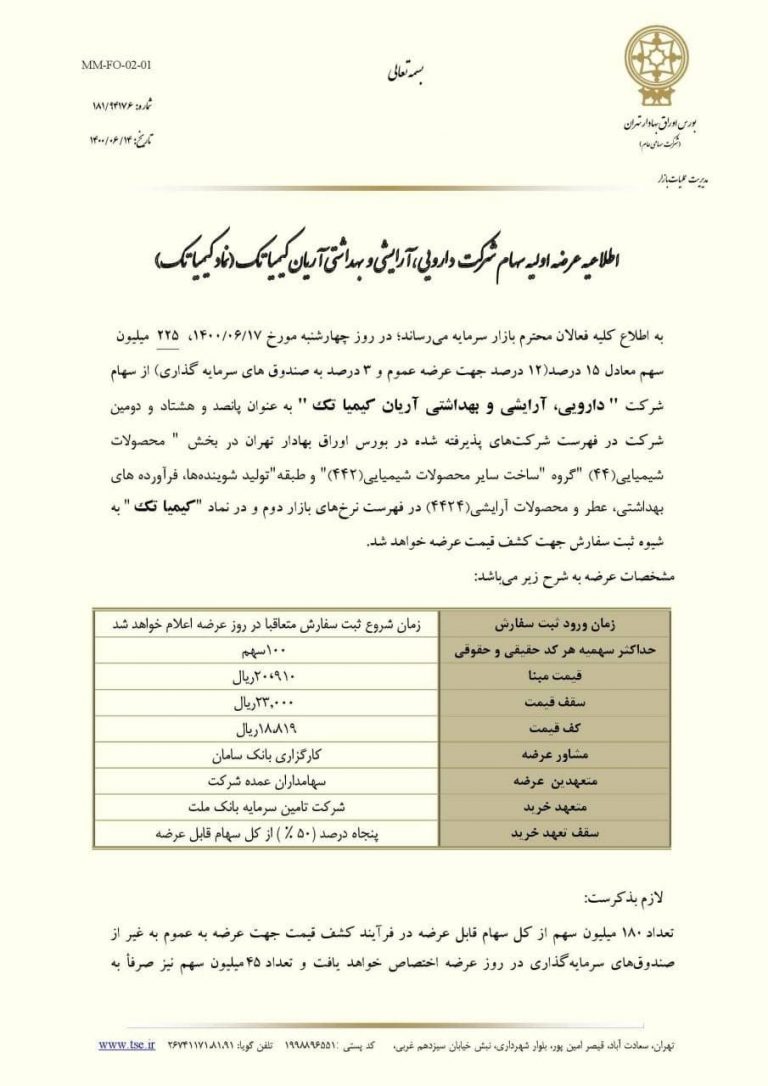 بسمه تعالی
MM-FO-02-01
شماره: ۱۸۱/۹۴۱۷۶
تاریخ: ۱۴۰۰/۰۶/۱۴
بورس اوراق بهادار تهران
(شرکت سهامی عام)
مدیریت عملیات بازار
اطلاعیه عرضه اولیه سهام شرکت دارویی، آرایشی و بهداشتی آریان کیمیا تک (نماد کیمیا تک)
به اطلاع کلیه فعالان محترم بازار سرمایه می‌رساند؛ در روز چهارشنبه مورخ ۱۴۰۰/۰۶/۱۷، ۲۲۵ میلیون
سهم معادل ۱۵ درصد(۱۲ درصد جهت عرضه عموم و ۳ درصد به صندوق های سرمایه گذاری) از سهام
شرکت " دارویی، آرایشی و بهداشتی آریان کیمیا تک " به عنوان پانصد و هشتاد و دومین
شرکت در فهرست شرکت‌های پذیرفته شده در بورس اوراق بهادار تهران در بخش " محصولات
شیمیایی(۴۴) "گروه "ساخت سایر محصولات شیمیایی(۴۴۲)" و طبقه"تولید شوینده‌ها، فرآورده های
بهداشتی، عطر و محصولات آرایشی(۴۴۲۴) در فهرست نرخ‌های بازار دوم و در نماد "کیمیا تک " به
شیوه ثبت سفارش جهت کشف قیمت عرضه خواهد شد.
مشخصات عرضه به شرح زیر می‌باشد:
زمان ورود ثبت سفارش زمان شروع ثبت سفارش متعاقبا در روز عرضه اعلام خواهد شد
حداکثر سهمیه هر کد حقیقی و حقوقی ۱۰۰سهم
قیمت مبنا ۲۰،۹۱۰ریال
سقف قیمت ۲۳,۰۰۰ریال
کف قیمت ۱۸،۸۱۹ریال
مشاور عرضه کارگزاری بانک سامان
متعهدین عرضه سهامداران عمده شرکت
متعهد خرید شرکت تامین سرمایه بانک ملت
سقف تعهد خرید پنجاه درصد (۵۰ ٪) از کل سهام قابل عرضه
لازم بذکرست:
تعداد ۱۸۰ میلیون سهم از کل سهام قابل عرضه در فرآیند کشف قیمت جهت عرضه به عموم به غیر از
صندوق‌های سرمایه‌گذاری در روز عرضه اختصاص خواهد یافت و تعداد ۴۵ میلیون سهم نیز صرفاً به
تهران، سعادت آباد، قیصر امین پور، بلوار شهرداری، نبش خیابان سیزدهم غربی، کد پستی :۱۹۹۸۸۹۶۵۵۱ تلفن گویا: ۲۶۷۴۱۱۷۱،۸۱،۹۱ www.tse.ir